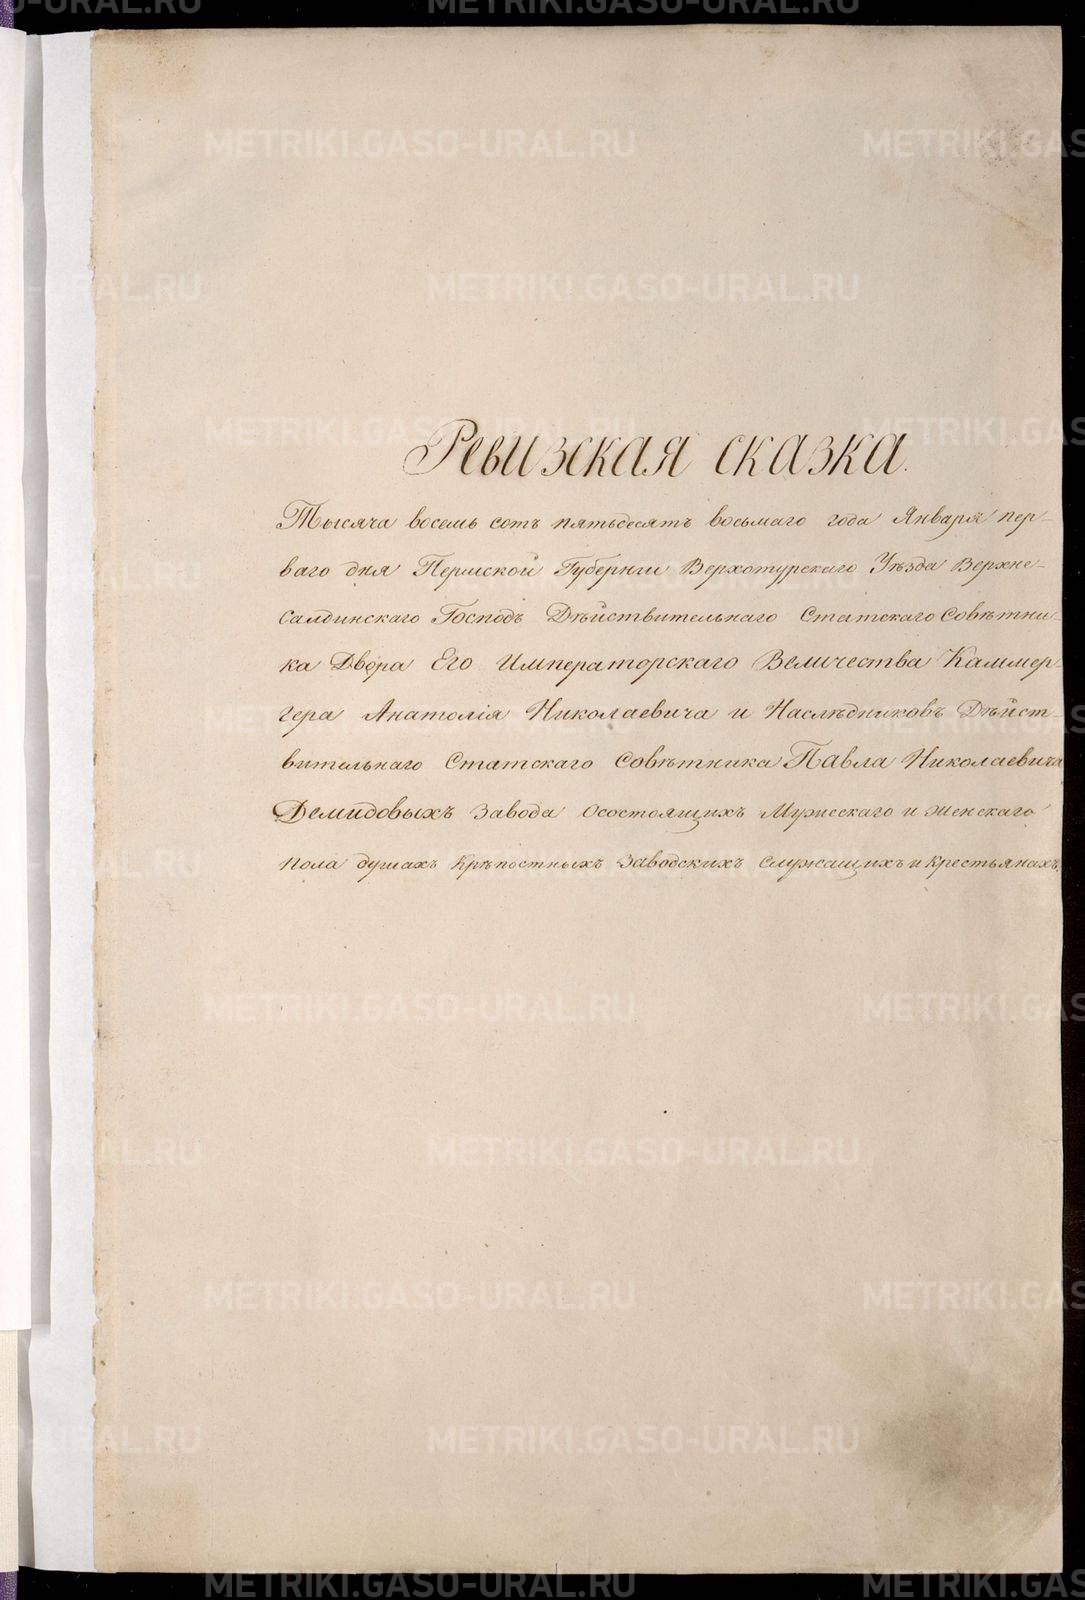 Ревизская сказка.
Тысяча восемь сотъ пятьдесятъ восьмаго года Января пер-
ваго дня Пермской Губернии Верхотурскаго Уѣзда Верхне-
салдинскаго Господъ Дѣйствительнаго Статскаго Совѣтни-
ка Двора Его Императорскаго Величества Каммер-
гера Анатолія Николаевича и Наслѣдниковъ Дѣйст-
вительнаго Статскаго Совѣтника Павла Николаевича
Демидовыхъ завода осостоящихъ Мужескаго и женскаго
пола душахъ крѣпостныхъ заводскихъ служащихъ и крестьянахъ.
METRIKI.GASO-URAL.RU